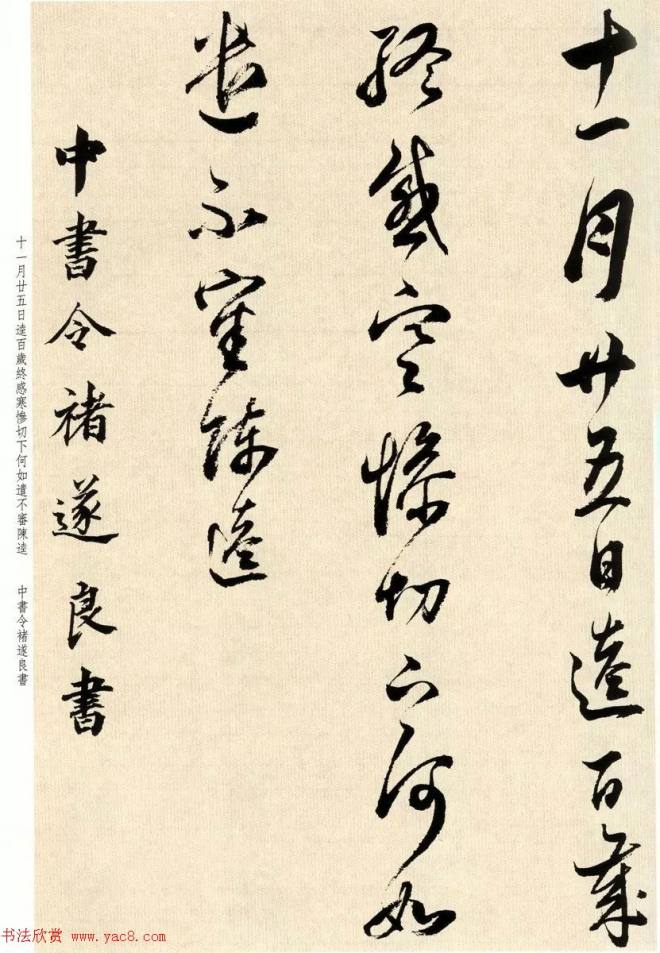 十一月廿五日逵百歲
終感寒慘切下何如
遣不審陳逵
中書令褚遂良書
十一月廿五日逵百歲終感寒慘切下何如遣不審陳逵 中書令褚遂良書
书法欣赏 www.yac8.com